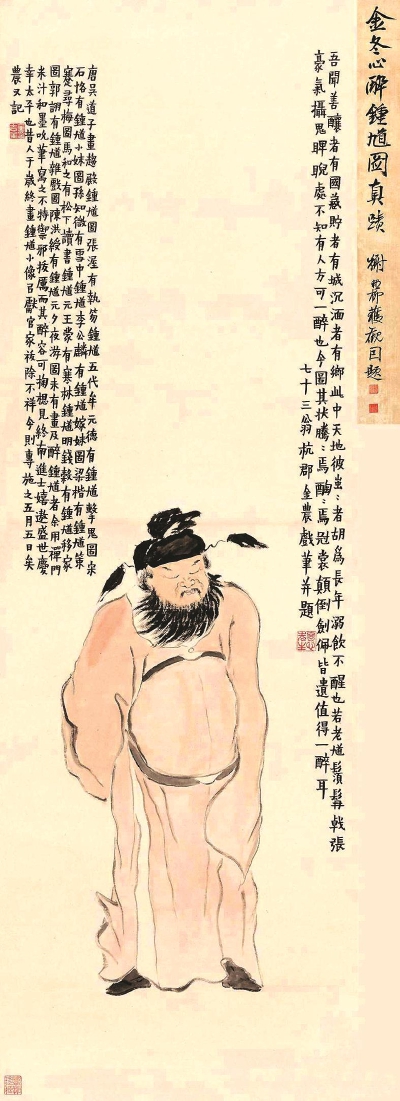 金冬心醉鍾馗圖真蹟
觀因題
吾聞善釀者有國藏貯者有城沉湎者有鄉此中天地彼蚩〻者胡為長年溺飲不醒也若老馗鬚髯戟張
豪氣攝鬼睥睨處不知有人方可一醉也今圖其狀騰〻焉酣〻焉冠裳顛倒劍佩皆遺值得一醉耳
七十三翁杭郡金農戲筆并題
唐吳道子畫趨殿鍾馗圖張渥有執笏鍾馗五代牟元德有鍾馗擊鬼圖宋
石恪有鍾馗小妹圖孫知微有雪中鍾馗李公麟有鍾馗嫁妹圖梁楷有鍾馗策
蹇尋梅圖馬和之有松下讀書鍾馗元王蒙有寒林鍾馗明錢穀有鍾馗移家
圖郭詡有鍾馗雜戲圖陳洪綬有鍾馗元夕夜游圖未有畫及醉鍾馗者余用禪門
米汁和墨吮筆寫之不特禦邪拔厲而其醉容可掬想見終南進士嬉遨盛世慶
幸太平也昔人于歲終畫鍾馗小像以獻官家祓除不祥今則專施之五月五日矣
農又記